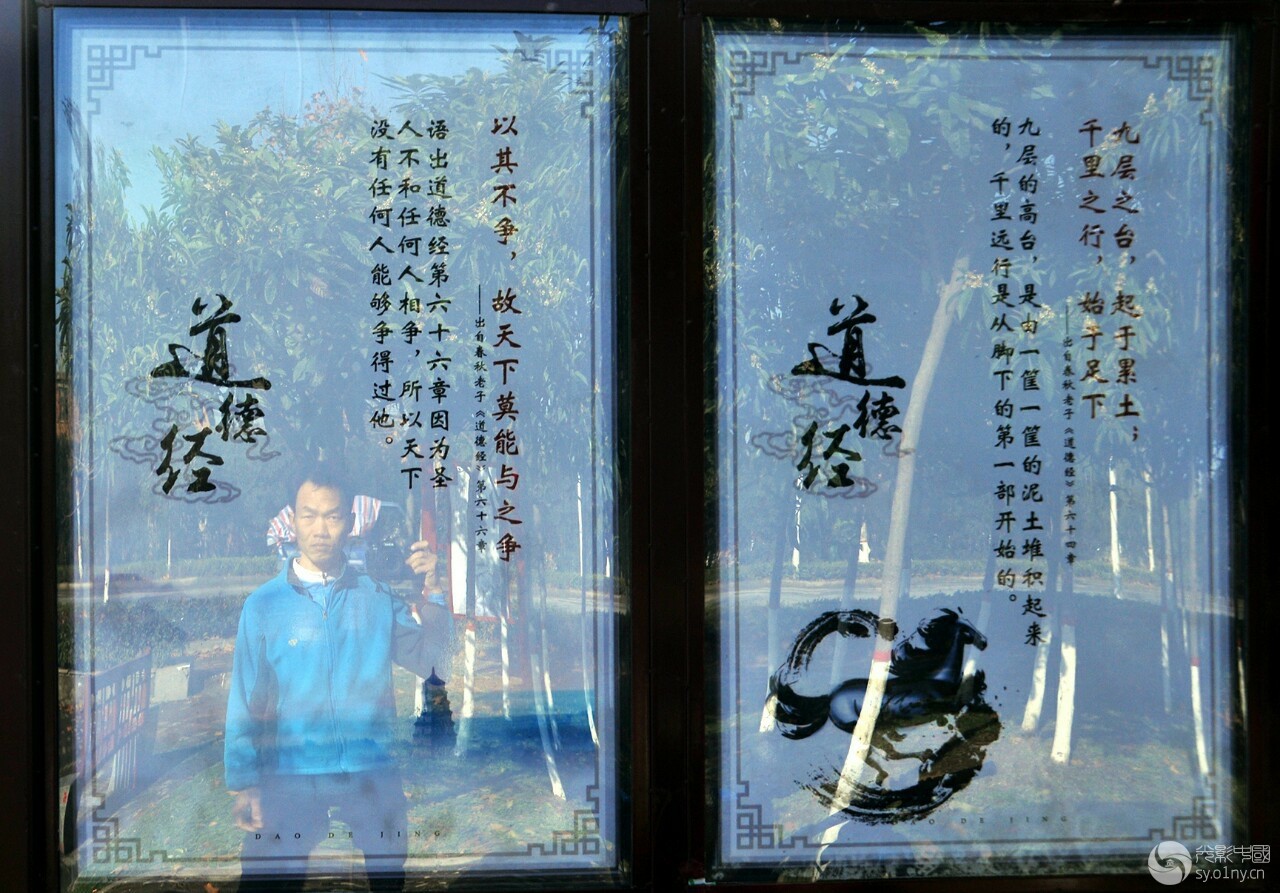 以其不争，故天下莫能与之争
——出自春秋老子《道德经》第六十六章
语出道德经第六十六章因为圣
人不和任何人相争，所以天下
没有任何人能够争得过他。
道德经
DAO DE JING
九层之台，起于累土；
千里之行，始于足下
——出自春秋老子《道德经》第六十四章
九层的高台，是由一筐一筐的泥土堆积起来
的，千里远行是从脚下的第一部开始的。
道德经
DAO DE JING
光影中國
sy.01ny.cn